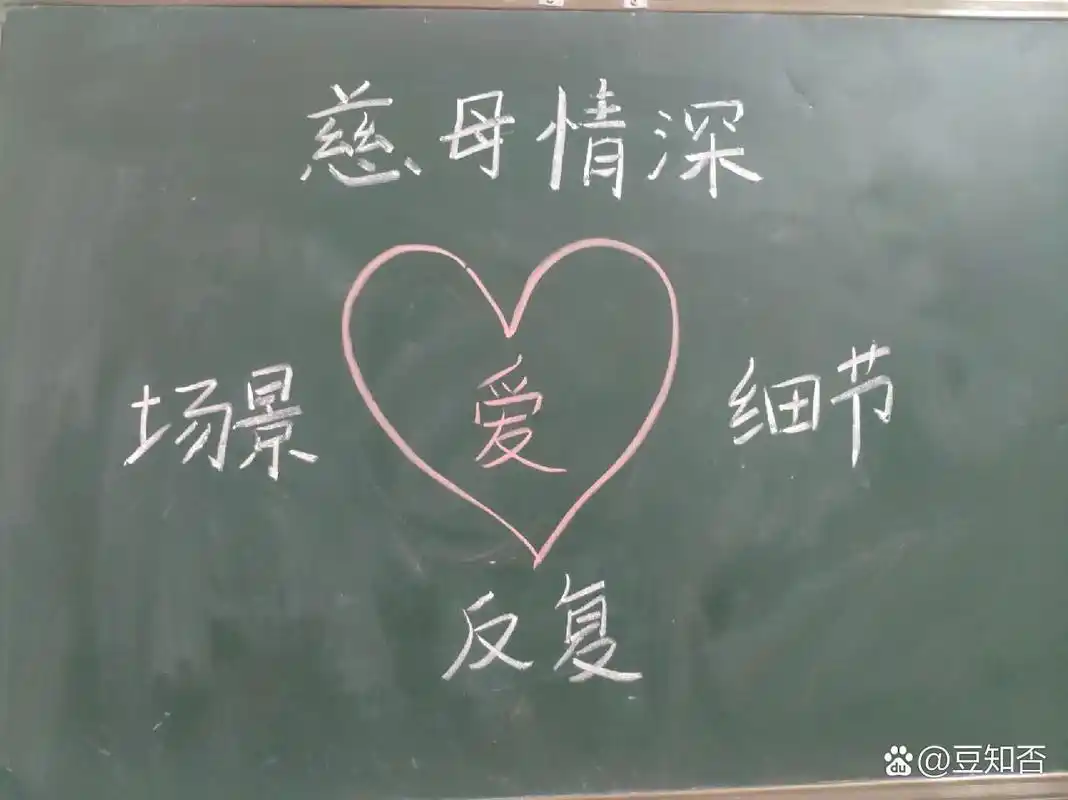 慈母情深
场景
爱
细节
反复
du @豆知否